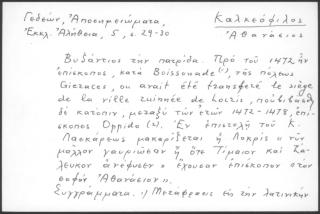 Γεδεών, Ἀποσημειώματα, Καλκεόφιλος
Ἐκκλ. Ἀλήθεια, 5, σ. 29-30 Ἀθανάσιος
Βυζάντιος τὴν πατρίδα. Πρὸ τοῦ 1472 ἦν
ἐπίσκοπος, κατὰ Boissonade (1), τῆς πόλεως
Gieraces, ou avait été transféré le siège
de la ville ruinée de Locris,
δὲ κατόπιν, μεταξὺ τῶν ἐτῶν 1472-1478, ἐπί-
σκοπος Oppido (2). Ἐν ἐπιστολῇ τοῦ Κ.
Λασκάρεως μακαρίζεται ἡ Λοκρὶς "νῦν
μᾶλλον γαυριῶσαν ἢ ὅτε Τίμαιον καὶ Ζά-
λευκον ἀνέφυσεν" ἔχουσαν ἐπίσκοπον "τὸν
σοφὸν Ἀθανάσιον".
Συγγράμματα. 1) Μετάφρασις εἰς τὴν λατινικὴν